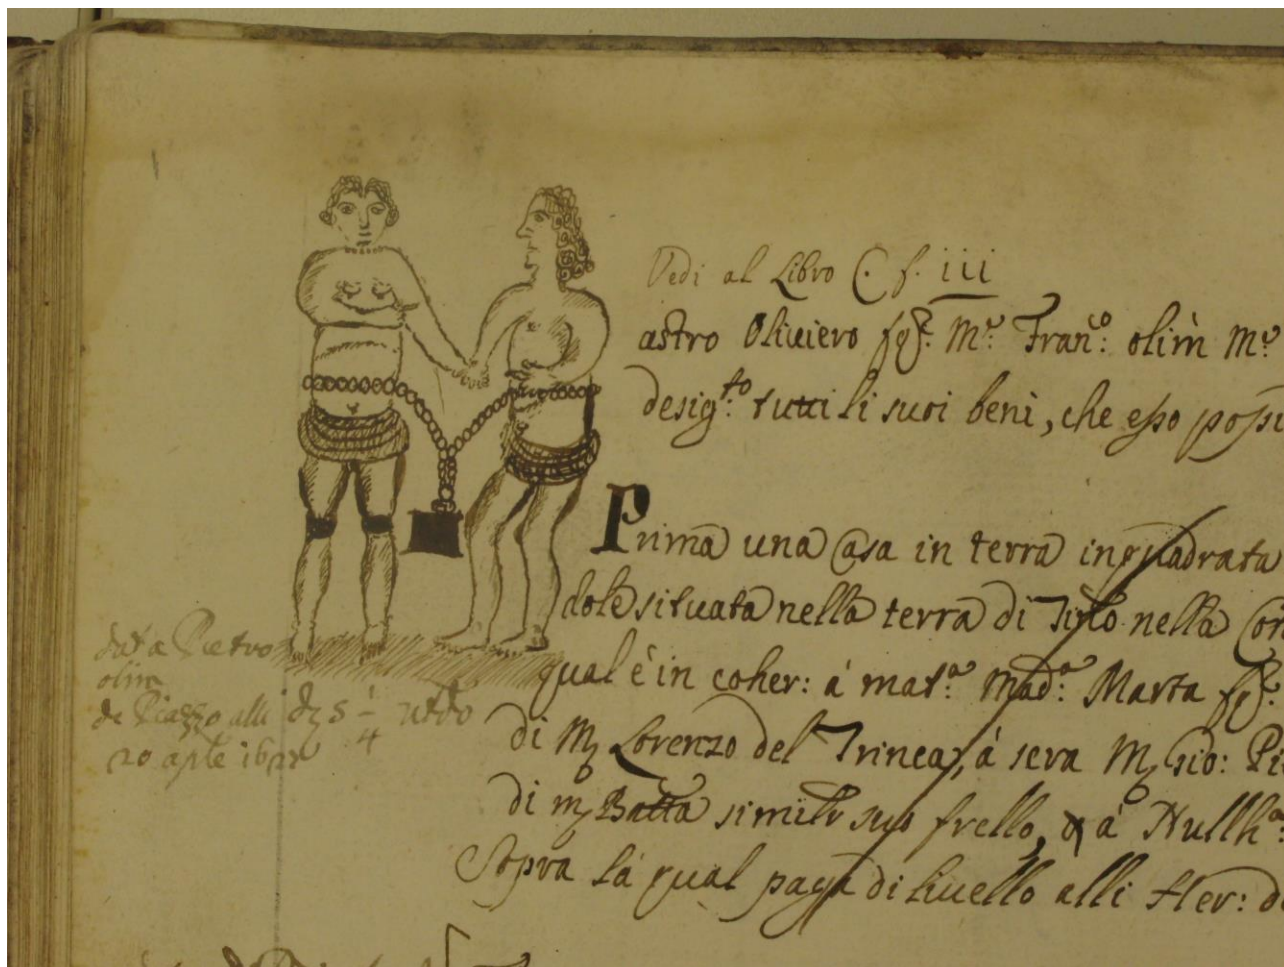 Vedi al Libro C. f. 111
astro Oliviero fq. Mr. Fran.o olim Mr.
desig.to tutti li suoi beni, che esso possi
Prima una Casa in terra inquadrata
dole situata nella terra di nella Con
qual é in coher: á mat.a Mad.a Marta fq.
di M Lorenzo del Trinca, á sera M Gio: Pi
di m Batta similr suo frello, & á Nullh.a:
Sopra lá qual paga di livello alli Her: de
dat a Pietro
olim
de Piazzo alli
20 aple